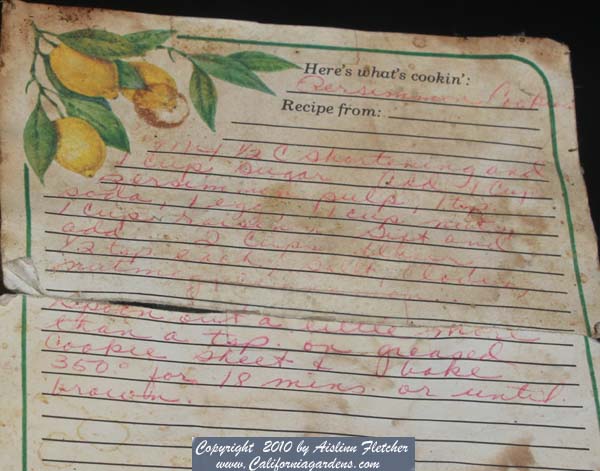 Here's what's cookin':
Persimmon Cookies
Recipe from:
Mix 1/2 C shortening and
1 cup sugar Add 1 cup
persimmon pulp, 1 tsp
soda, 1 egg, 1 cup nuts,
1 cup raisins. Sift and
add 2 cups flour,
1/2 tsp each salt, cloves,
nutmeg
Spoon out a little more
than a tsp. on greased
cookie sheet & bake
350° for 18 mins or until
brown.
Copyright 2010 by Aislinn Fletcher
www.Californiagardens.com